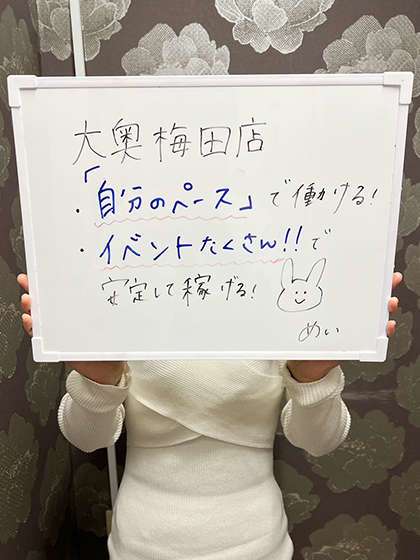 大奥梅田店
・「自分のペース」で働ける！
・イベントたくさん!!で
安定して稼げる！
めい